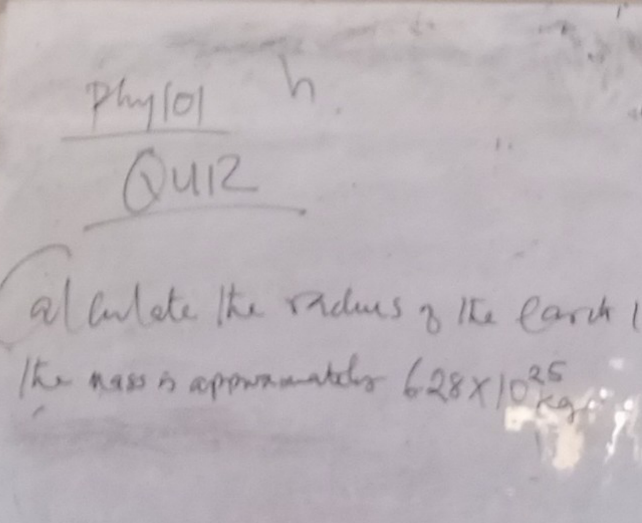 Phy101 h.
QUIZ
Calculate the radius of the Earth
the mass is approximately 6.28x10^25 kg